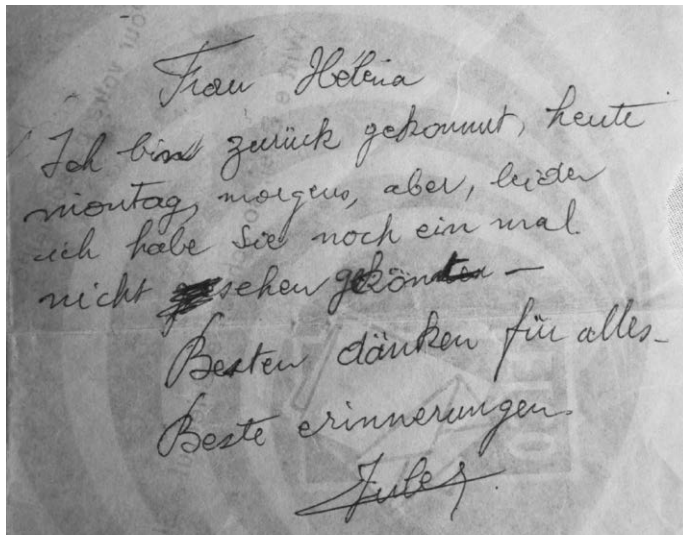 Frau Helena
Ich bin zurück gekommt, heute
montag, morgens, aber, leider
ich habe Sie noch ein mal
nicht sehen gekönnten –
Besten dänken für alles –
Beste erinnerungen.
Jules